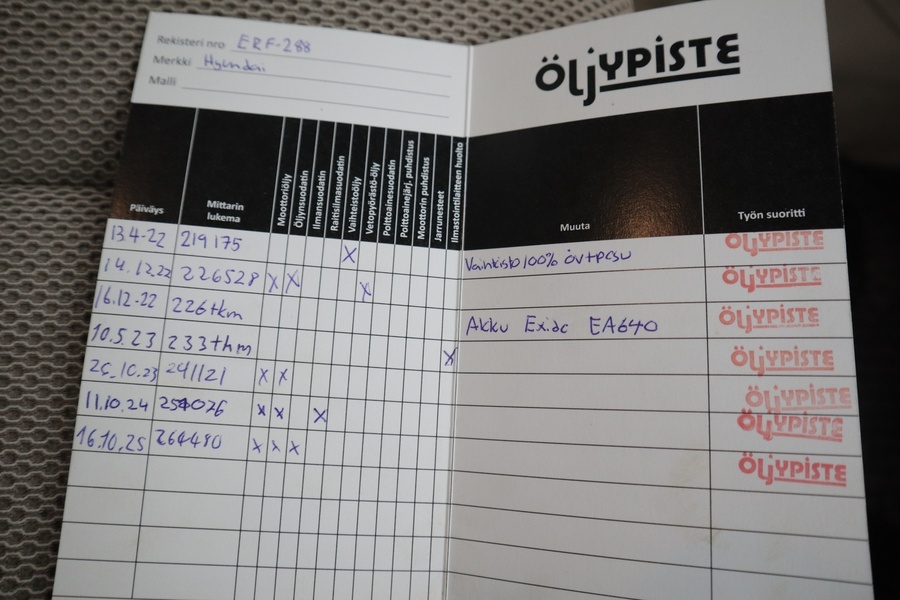 Rekisteri nro ERF-288
Merkki Hyundai
Malli
ÖLJYPISTE
Päiväys
Mittarin lukema
Moottoriöljy
Öljynsuodatin
Ilmansuodatin
Raitisilmasuodatin
Vaihteistoöljy
Vetopyörästö-öljy
Polttoainesuodatin
Polttoainejärj. puhdistus
Moottorin puhdistus
Jarrunesteet
Ilmastointilaitteen huolto
Muuta
Työn suoritti
13.4-22 219175 x Vaihteisto 100% öv+pesu ÖLJYPISTE
14.12.22 226528 x x x ÖLJYPISTE
16.12-22 226tkm Akku Exide EA640 ÖLJYPISTE
10.5.23 233thm x ÖLJYPISTE
26.10.23 241121 x x ÖLJYPISTE
11.10.24 254026 x x x ÖLJYPISTE
16.10.25 264480 x x x ÖLJYPISTE